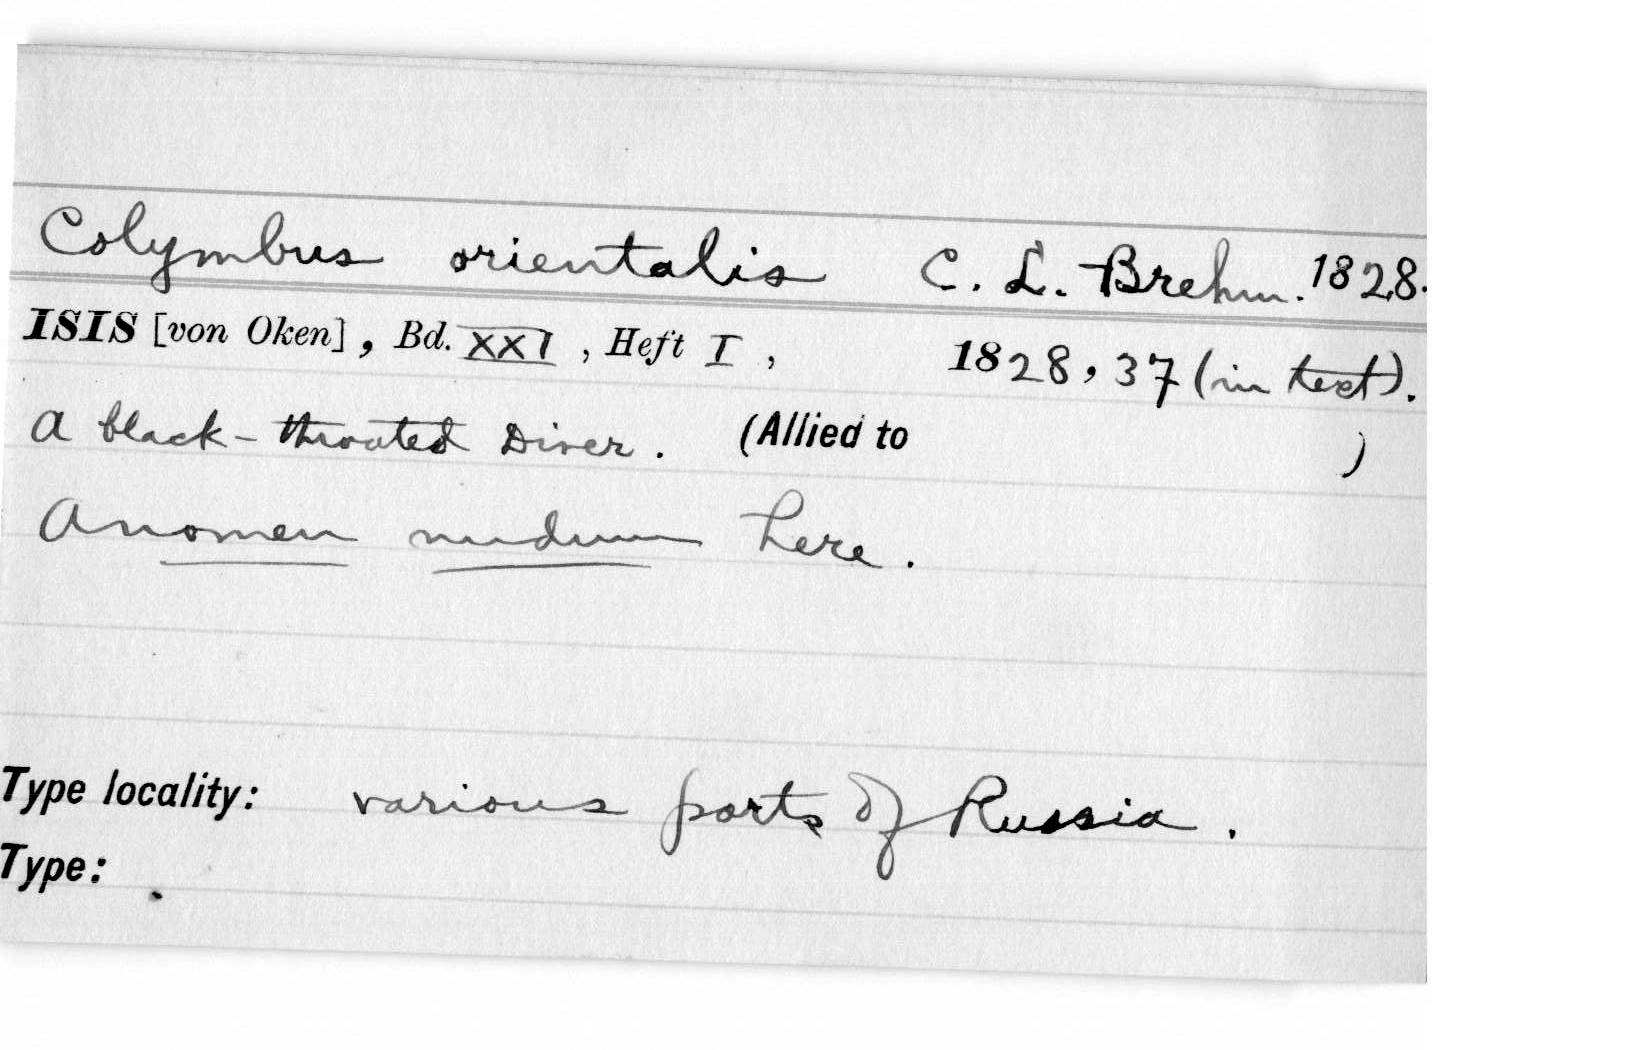 Colymbus orientalis C. L. Brehm. 1828.
ISIS [von Oken], Bd. XXI, Heft I, 1828, 37 (in text).
A black-throated Diver. (Allied to )
A nomen nudum here.
Type locality: various parts of Russia.
Type: